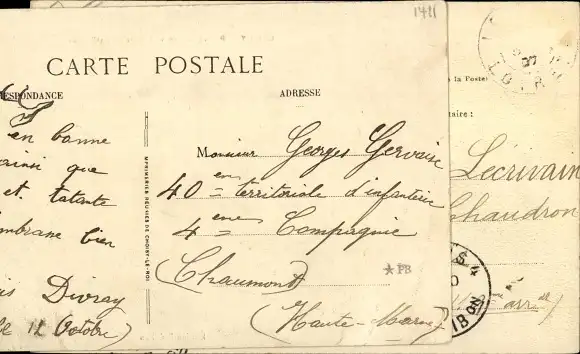 1411
CARTE POSTALE
RESPONDANCE
ADRESSE
en bonne
ainsi que
et tatante
mbrane bien
Divray
12 Octobre)
IMPRIMERIE REUNIES DE CHOISY-LE-ROI
Monsieur Georges Gervaise
40 eme territoriale d'infanterie
4 eme Compagnie
(Chaumont)
(Haute-Marne)
★PB
à la Poste
taire :
Lécrivain
Chaudron
arr